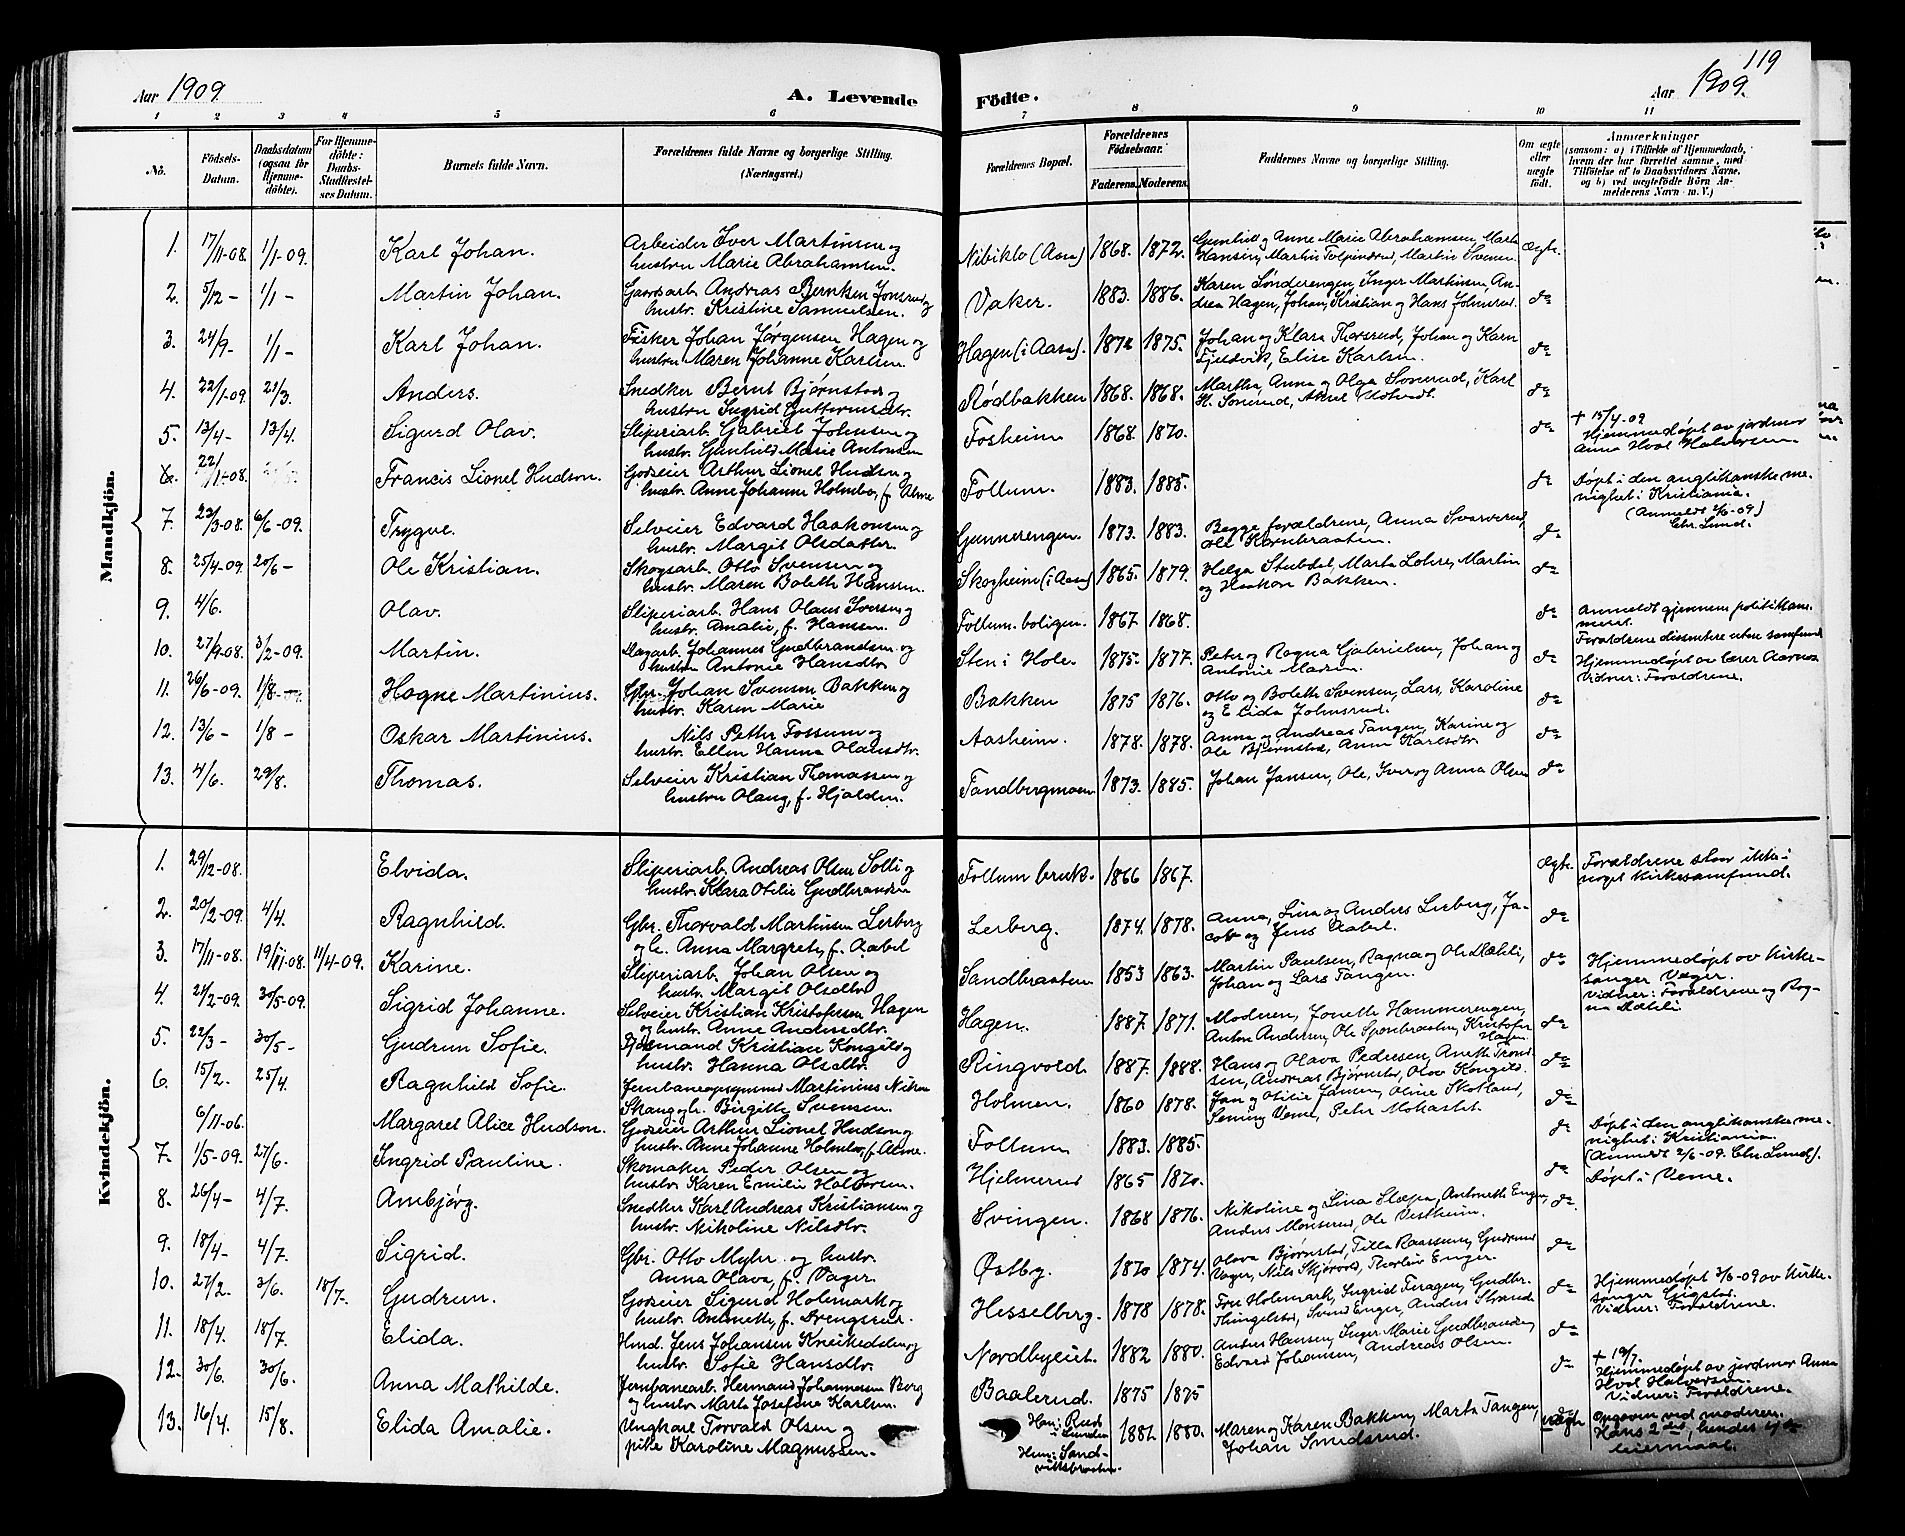 119
Aar 1909.
A. Levende Födte.
Aar 1909.
1 2 3 4 5 6 7 8 9 10 11
No.
Födsels-Datum.
Daabsdatum (ogsaa for Hjemme-döbte).
For Hjemme-döbte: Daabs-Stadfæstel-ses Datum.
Barnets fulde Navn.
Forældrenes fulde Navne og borgerlige Stilling.
(Næringsvei.)
Forældrenes Bopæl.
Forældrenes Födselsaar.
Faderens. Moderens.
Faddernes Navne og borgerlige Stilling.
Om ægte eller uægte födt.
Anmærkninger
(saasom: a) i Tilfælde af Hjemmedaab, hvem der har forrettet samme, med Tilföielse af to Daabsvidners Navne, og b) ved uægtefödte Börn Anmelderens Navn m. V.)
Mandkjön.
1. 17/11-08. 1/1-09. Karl Johan. Arbeider Iver Martinsen og hustru Marie Abrahamsen. Nibiklo (Aasa) 1868. 1872. Gunhild og Anne Marie Abrahamsen, Marte Hansen, Martin Tolpinrud, Martin Svensen. ægte.
2. 5/12 - 1/1 - Martin Johan. Gaardsarb. Andreas Berntsen Jonsrud og hustr. Kristine Samuelsen. Vaker. 1883. 1886. Karen Sønderengen, Inger Martinsen, Andrea Hagen, Johan, Kristian og Hans Johnsrud. do
3. 24/9- 1/1 - Karl Johan. Fisker Johan Jørgensen Hagen og hustru Maren Johanne Karlsen. Hagen (i Aasa). 1872 1875. Johan og Klara Thorsrud, Johan og Karen Fjeldvik, Elise Karlsen. do
4. 22/1-09. 21/3. Anders. Snedker Bernt Bjørnstad og hustru Ingrid Guttormsdtr. Rødbakken 1868. 1868. Martha, Anna og Olga Sonerud, Karl H. Sonerud, do
5. 13/4- 13/4. Sigurd Olav. Sliperiarb. Gabriel Johnsen og hustr. Gunhild Marie Antonsen Fosheim 1868. 1870. do + 15/4-09 Hjemmedøpt av jordmor Anna Hval Halvorsen.
6. 22/1-08. Francis Lionel Hudson. Godseier Arthur Lionel Hudson og hustr. Anne Johanne Holmboe, f. Alme Follum. 1883. 1885. do Døpt i den anglikanske menighet i Kristiania. (Anmeldt 2/6-09) Chr. Lund.
7. 23/3-08. 6/6-09. Trygve. Selveier Edvard Haakonsen og hustr. Margit Olsdatter. Gunnerengen. 1873. 1883. Begge forældrene, Anna Svarverud, Ole Kornbraaten. do
8. 25/4-09. 20/6 - Ole Kristian. Skogsarb. Otto Svensen og hustr. Maren Boleth Hansen. Skogheim (i Aasa) 1865. 1879. Helga Stubdal, Marta Lohre, Martin og Haakon Bakken. do
9. 4/6. Olav. Sliperiarb. Hans Olaus Iversen og hustr. Amalie, f. Hanssen. Follum. boligen. 1867 1868. do Anmeldt gjennem politikammeret. Forældrene dissentere uten samfund
10. 27/9-08. 3/2-09. Martin. Dagarb. Johannes Gudbrandsen og hustru Antonie Hansdtr Sten i Hole. 1875. 1877. Peter og Ragna Gabrielsen, Johan og Antonie Madsen. do Hjemmedøpt av lærer Aarnes Vidner: Forældrene.
11. 26/6-09. 1/8 - Hogne Martinius. Gbr. Johan Svensen Bakken og hustr. Karen Marie Bakken 1875 1876. Otto og Boleth Svensen, Lars, Karoline og Elida Johnsrud. do
12. 13/6- 1/8 - Oskar Martinius. Nils Petter Fossum og hustr. Ellen Hanna Olausdtr. Aasheim. 1878. 1878. Anna og Andreas Tangen, Karine og Ole Bjørnstad, Anna Karlsdtr. do
13. 4/6. 29/8. Thomas. Selveier Kristian Thomassen og hustru Olaug, f. Hjalden. Tandbergmoen 1873. 1885. Johan Jansen, Ole, Iver og Anna Olsen do
Kvindekjön.
1. 29/12-08. Elvida. Sliperiarb. Andreas Olsen Solli og hustr. Klara Otilie Gudbrandsen Follum bruk. 1866 1867. ægte. Forældrene staar ikke i noget kirkesamfund.
2. 20/2-09. 4/4. Ragnhild. Gbr. Thorvald Martinsen Lerberg og h. Anna Margrete, f. Aabel Lerberg. 1874. 1878. Anna, Lina og Anders Lerberg, Jacob og Jens Aabel. do
3. 17/11-08. 19/11-08. 11/4-09. Karine. Sliperiarb. Johan Olsen og hustr. Margit Olsdtr Sandbraaten 1853 1863. Martin Paulsen, Ragna og Ole Mæhli, Johan og Lars Tangen. do Hjemmedøpt av kirkesanger Vager. vidner: Forældrene og Ragna Mæhli
4. 21/2-09. 30/5-09. Sigrid Johanne. Selveier Kristian Kristofersen Hagen og hustr. Anne Andersdtr. Hagen. 1887. 1871. Moderen, Jonette Hammerengen, Anton Andersen, Ole Sponbraaten, Kristofer Hagen. do
5. 22/3 - 30/5 - Gudrun Sofie. Kristian Kongsld og hustr. Hanna Olsdtr. Ringvold 1887. 1888. Hans og Olava Pedersen, Aneth Trondsen, Andreas Bjørnstad, Olav Kongsld. do
6. 15/2. 25/4. Ragnhild Sofie. Jernbaneopsynsmd Martinius Nilsen Skaug og h. Birgitte Svensen. Holmen. 1860 1878. Jan og Otilie Jansen, Oline Skotland, Peter Mokastet. do
6/11-06. Margaret Alice Hudson. Godseier Arthur Lionel Hudson og hustr. Anne Johanne Holmboe, f. Alme. Follum 1883. 1885. do Døpt i den anglikanske menighet i Kristiania. (Anmeldt 2/6-09. Chr. Lund).
7. 1/5-09. 27/6. Ingrid Pauline. Skomaker Peder Olsen og hustr. Karen Emilie Halvorsen. Hjelmerud 1865 1870. do Døpt i Veme.
8. 26/4- 4/7. Ambjørg. Snedker Karl Andreas Kristiansen og hustr. Nikoline Nilsdtr. Svingen. 1868 1876. Nikoline og Lina Slæpa, Antonette Enger, Anders Monserud, Ole Vestheim. do
9. 18/4- 4/7. Sigrid. Gbr. Otto Myhr og hustr. Anna Olava, f. Vager. Østby. 1870 1874. Olava Bjørnstad, Tilla Raassum, Gudrund Vager, Nils Skjørvold, Thorleiv Enger. do
10. 27/2. 3/6. 18/7. Gudrun. Godseier Sigurd Holmark og hustr. Annette, f. Drengsrud. Hesselberg. 1878 1878. Fru Holmark, Ingrid Feragen, Gudbr. Thingelstad, Svend Enger, Anders Strande do Hjemmedøpt 3/6-09 av kirkesanger Gigstad. Vidner: Forældrene.
11. 18/4. 18/7. Elida. Hmd. Jens Johansen Kneikedalen og hustr. Sofie Hansdtr. Nordbyeiet. 1882 1880. Anders Hansen, Inger Marie Gudbrandsen, Edvard Johansen, Andreas Olsen. do
12. 30/6. 30/6. Anna Mathilde. Jernbanearb. Hermand Johannesen Berg og hustr. Marta Josefine Karlsen. Baalerud. 1875 1875 do + 19/7. Hjemmedøpt av jordmor Anna Hval Halvorsen. Vidner: Forældrene.
13. 16/4. 15/8. Elida Amalie. Ungkarl Torvald Olsen og pike Karoline Magnussen. Han: Rud i Lunder Hun: Sandviksbraaten. 1882 1880. Maren og Karen Bakken, Marta Tangen, Johan Smedsrud. uægte Opgaven ved moderen. Hans 2det, hendes 1ste leiermaal.